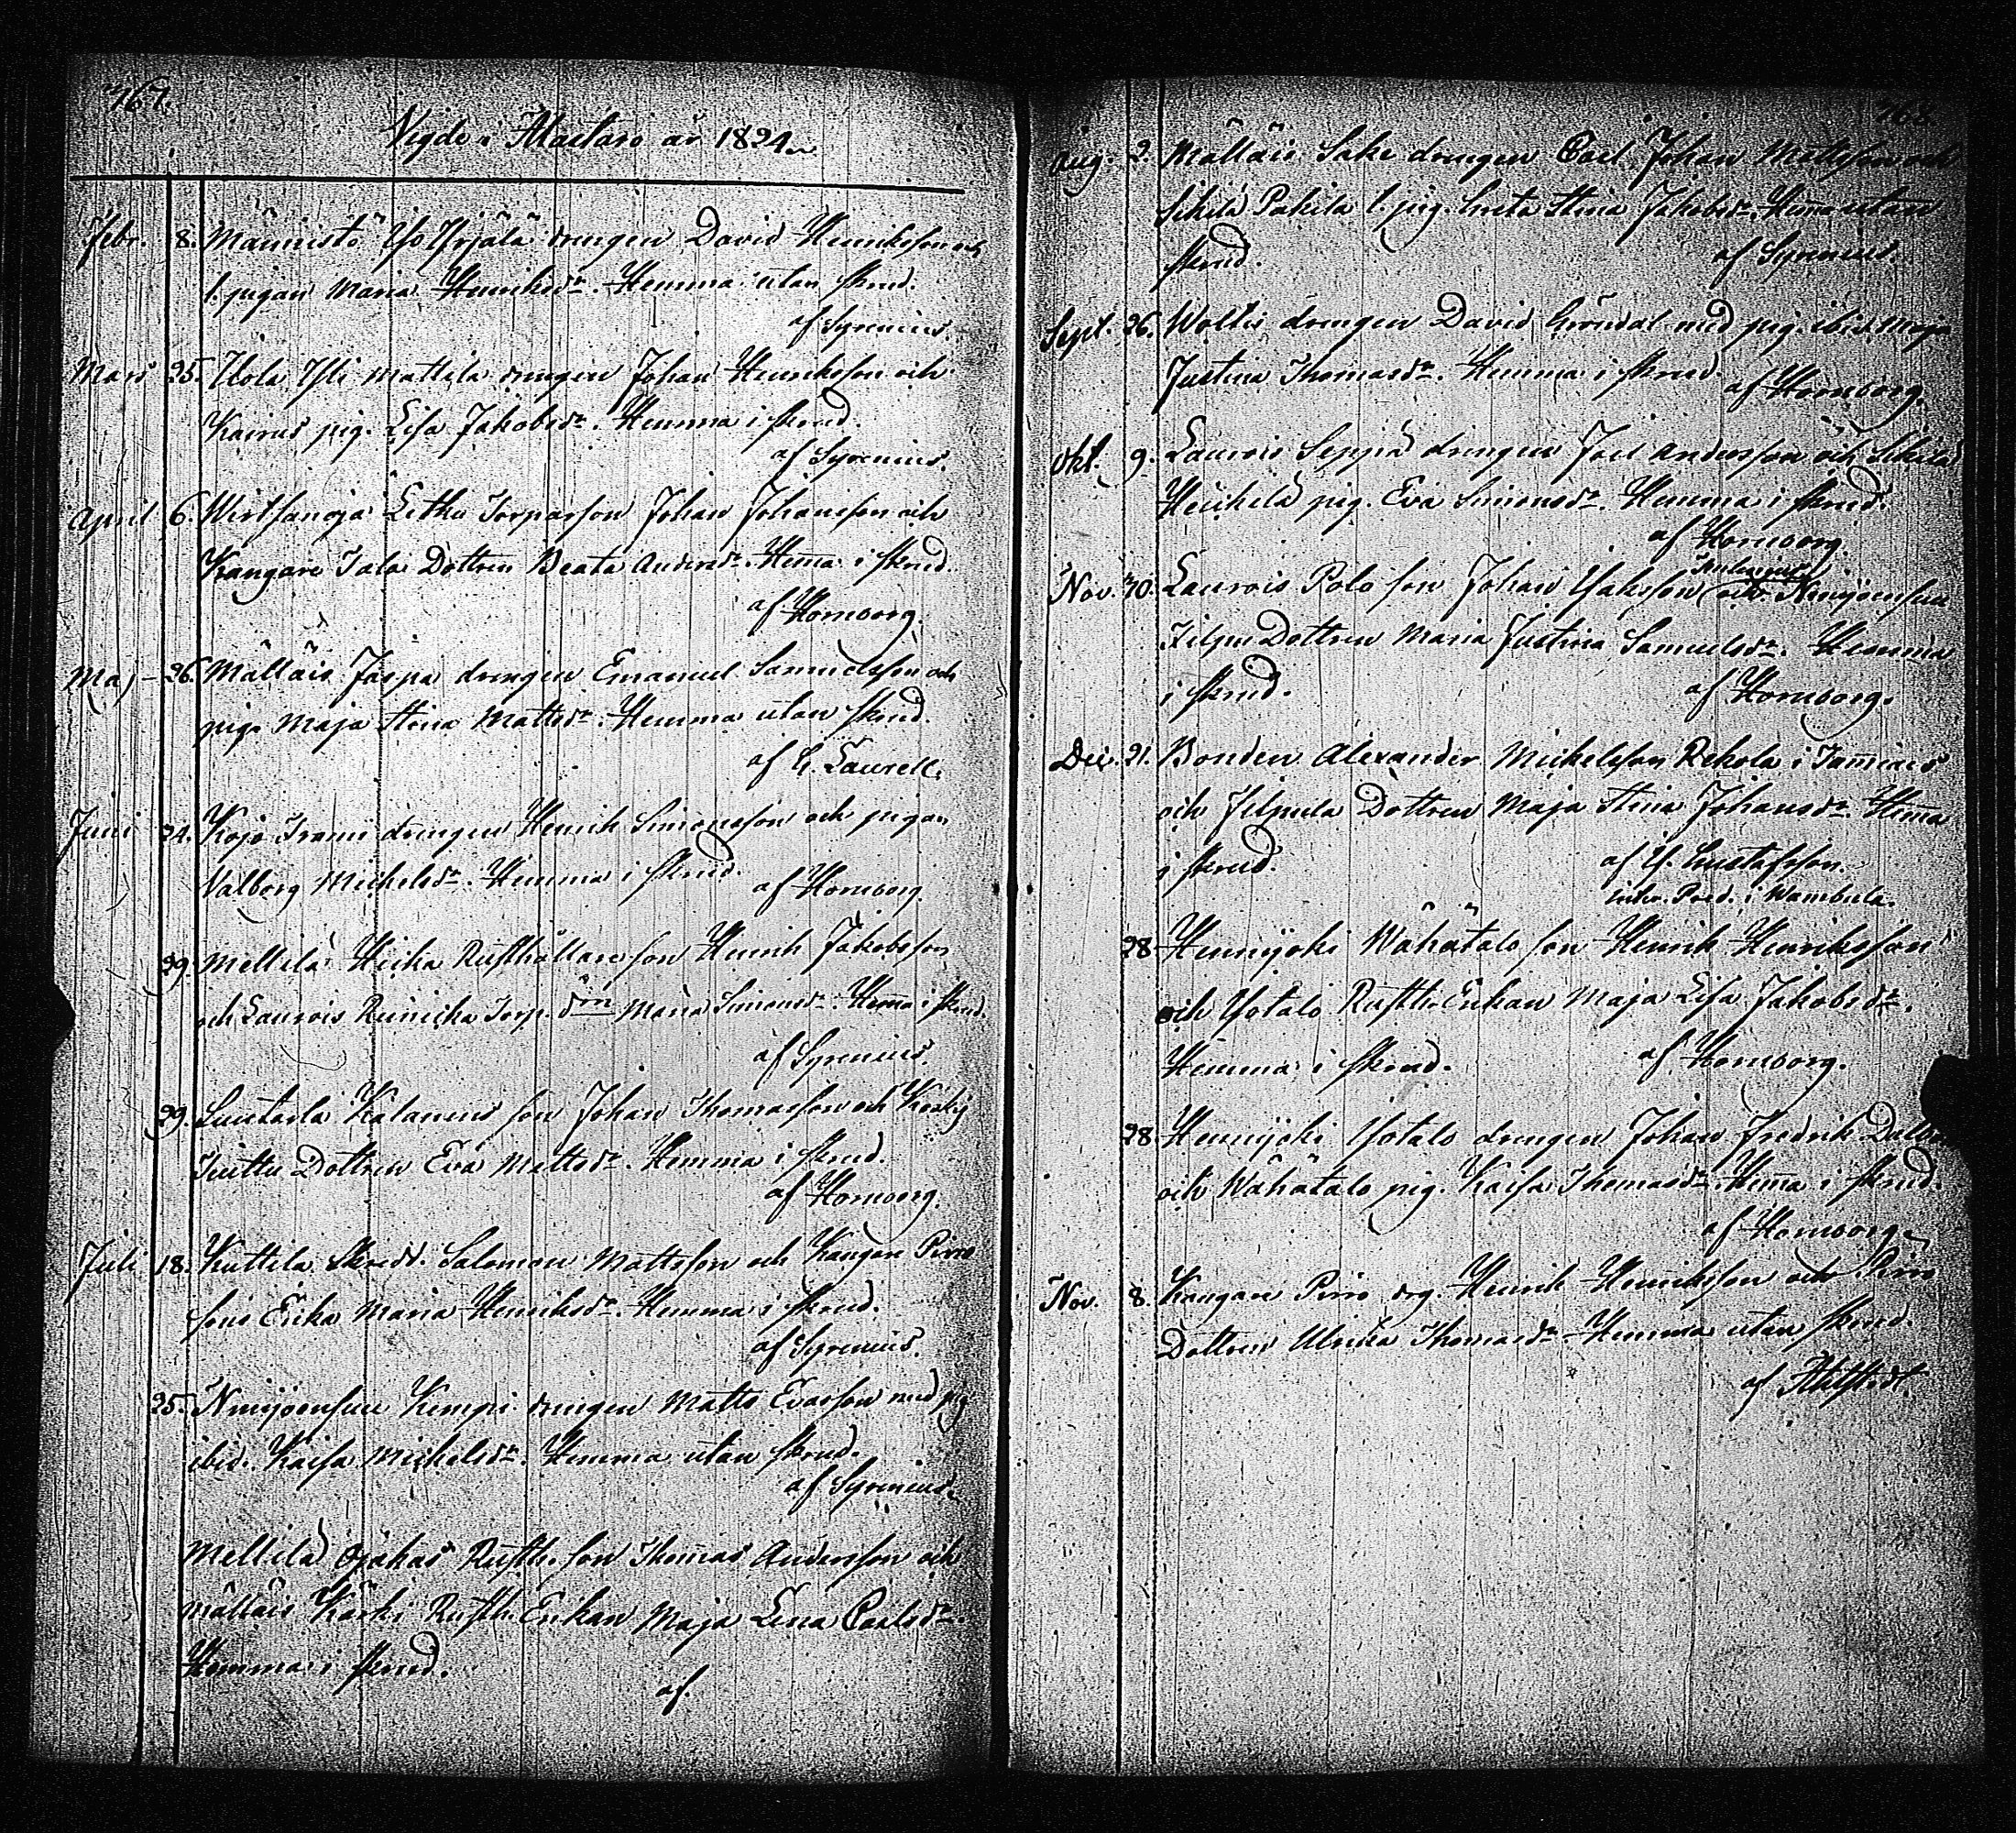 767.
Vigde i år 1824.
Febr. 8. Männistö Yrjälä drengen David Henriksson och
l. pigan Maria Henriksdr. Hemma utan skrud.
af Syrenius.
Mars 25. Uola Yli Mattila drengen Johan Henriksson och
Kairus pig. Lisa Jakobsdr. Hemma i skrud.
af Syrenius.
April 6. Wirtsanoja Torparson Johan Johansson och
Kangare Tala Dottren Beata Andersdr. Hemma i skrud.
af Hornborg.
Maj 26. Mälläis Jaspa drengen Emanuel Samuelsson och
pig. Maja Stina Mattsdr. Hemma utan skrud.
af G. Laurell.
Juni 24. Kojo drengen Henrik Simonsson och pigan
Valborg Michelsdr. Hemma i skrud. af Hornborg.
29. Mellilä Heika Rusthållare son Henrik Jakobsson
och Laurois Reinicka Torp. drn Maria Simonsdr. Hemma i skrud.
af Syrenius.
29. Suutarla Kalamius son Johan Thomasson och Korkij
Dottren Eva Mattsdr. Hemma i skrud.
af Hornborg.
Juli 18. Kuttila Skredd. Salomon Mattsson och Kangare Pirro
sons Enka Maria Henriksdr. Hemma i skrud.
af Syrenius.
25. Ninijoensuu Kemppi drengen Matts Evasson med pig
ibid. Kaisa Michelsdr. Hemma utan skrud.
af Syrenius.
Mellilä Ojakas Rusth. son Thomas Andersson och
Mälläis Kärki Rusth. Enkan Maja Lena Carlsdr.
Hemma i skrud.
af.
768.
Aug. 2. Mälläis Sake drengen Carl Johan Mattsson och
Sikilä Pakila l. pig. Greta Stina Jakobsdr. Hemma utan
skrud. af Syrenius.
Sept. 26. Woltis drengen David Gröndal med pig. ibid. Maja
Justina Thomasdr. Hemma i skrud. af Hornborg.
Okt. 9. Laurois Seppä drengen Joel Andersson och Sikilä
Heickelä pig. Eva Simonsdr. Hemma i skrud.
af Hornborg.
Nov. 20. Laurois Polo son Johan Isaksson och Ninijoensuu
Filpu Dottren Maria Justina Samuelsdr. Hemma
i skrud. af Hornborg.
Dec. 21. Bonden Alexander Michelsson Rekola i Tammiais
och Filpula Dottren Maja Stina Johansdr. Hemma
i skrud. af Y. Gustafsson.
Pred. i Wambula.
28. Hennijoki Wähätalo son Henrik Henriksson
och Isotalo Rusth. Enkan Maja Lisa Jakobsdr.
Hemma i skrud. af Hornborg.
28. Hennijoki Isotalo drengen Johan Fredrik
och Wähätalo pig. Kaisa Thomasdr. Hemma i skrud.
af Hornborg.
Nov. 8. Kangare Pirro drg. Henrik Henriksson och Pirro
Dottren Ulrika Thomasdr. Hemma utan skrud.
af Ahlstedt.